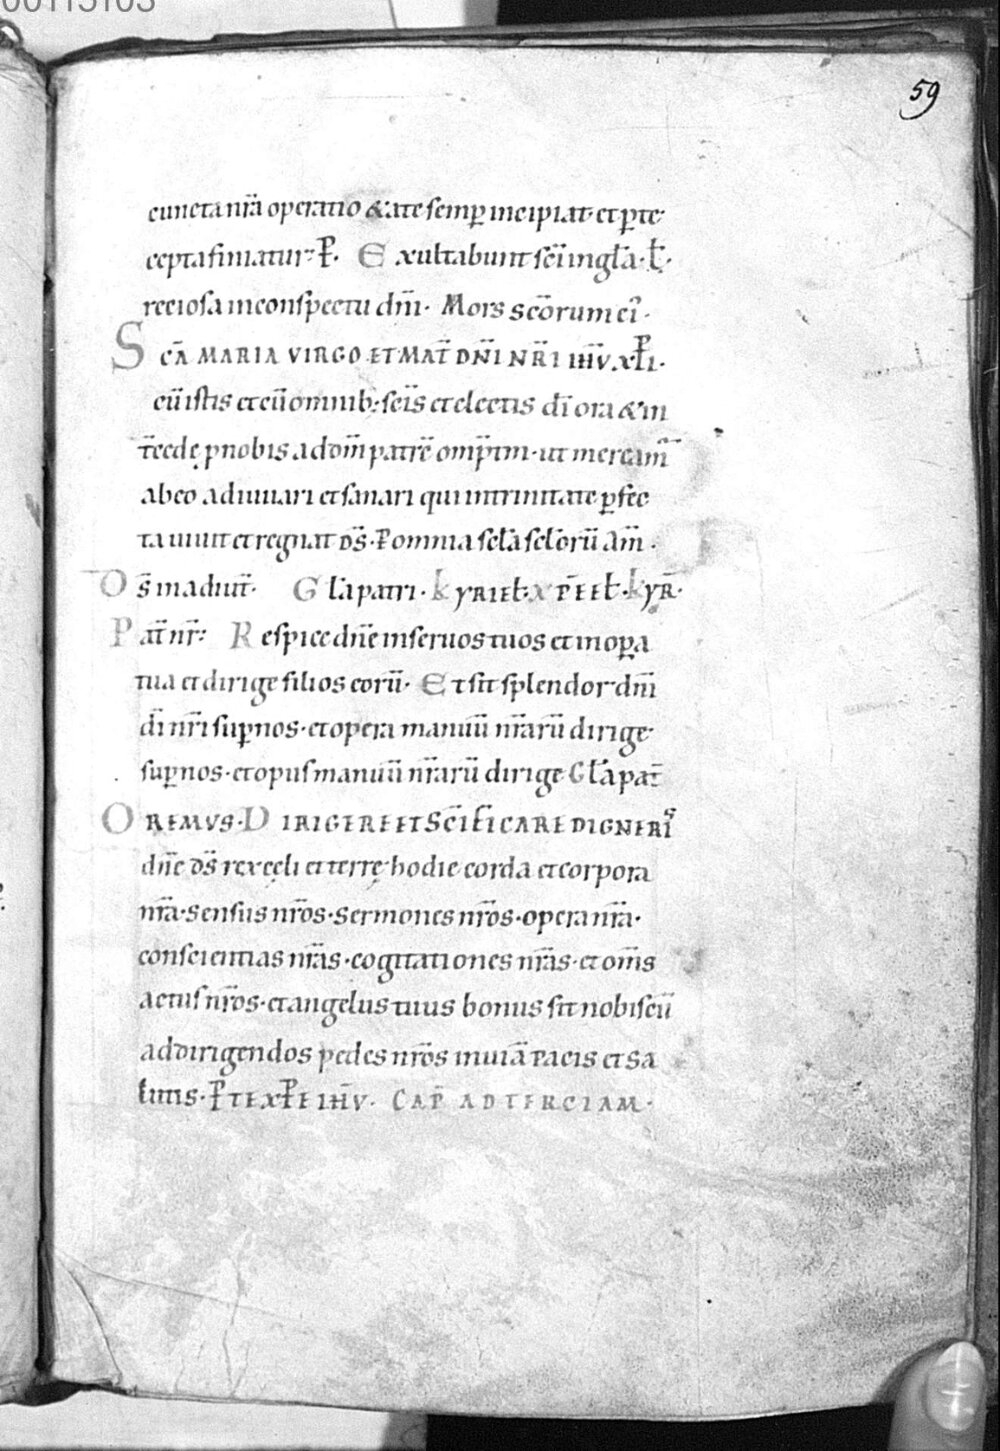 00113103
59
cuncta nr̄a operatio & ate semp incipiat et p te
cepta finiatur. P. Exultabunt sc̄i in gl̄a. L.
reciosa in conspectu dn̄i. Mors sc̄orum ei.
SCA MARIA VIRGO ET MAT̄ DN̄I NR̄I IHV̄ XPI.
cū istis et cū omnib; sc̄is et electis dī ora & in
t̄cedę p nobis ad dom̄ patrē omp̄tm. ut meream̄
ab eo adiuuari et sanari qui in trinitate p fec
ta uiuit et regnat ds̄. P omnia scl̄a scl̄orū Am̄.
Ds̄ in adiut̄. Gl̄a patri. KYRIEL. XPEEL. KYR̄.
Pat̄ nr̄. Respice dn̄e in seruos tuos et in opa
tua et dirige filios eorū. Et sit splendor dn̄i
dī nr̄i sup nos. et opera manuū nr̄arū dirige
sup nos. et opus manuū nr̄arū dirige Gl̄a pat̄
OREMVS. DIRIGERE ET SC̄IFICARE DIGNERIS
dn̄e ds̄ rex cęli et terrę hodie corda et corpora
nr̄a. sensus nr̄os. sermones nr̄os. opera nr̄a.
conscientias nr̄as. cogitationes nr̄as. et om̄s
actus nr̄os. et angelus tuus bonus sit nobiscū
ad dirigendos pedes nr̄os in uiā pacis et sa
lutis. P TE XPE IHV̄. CAP̄ AD TERCIAM.